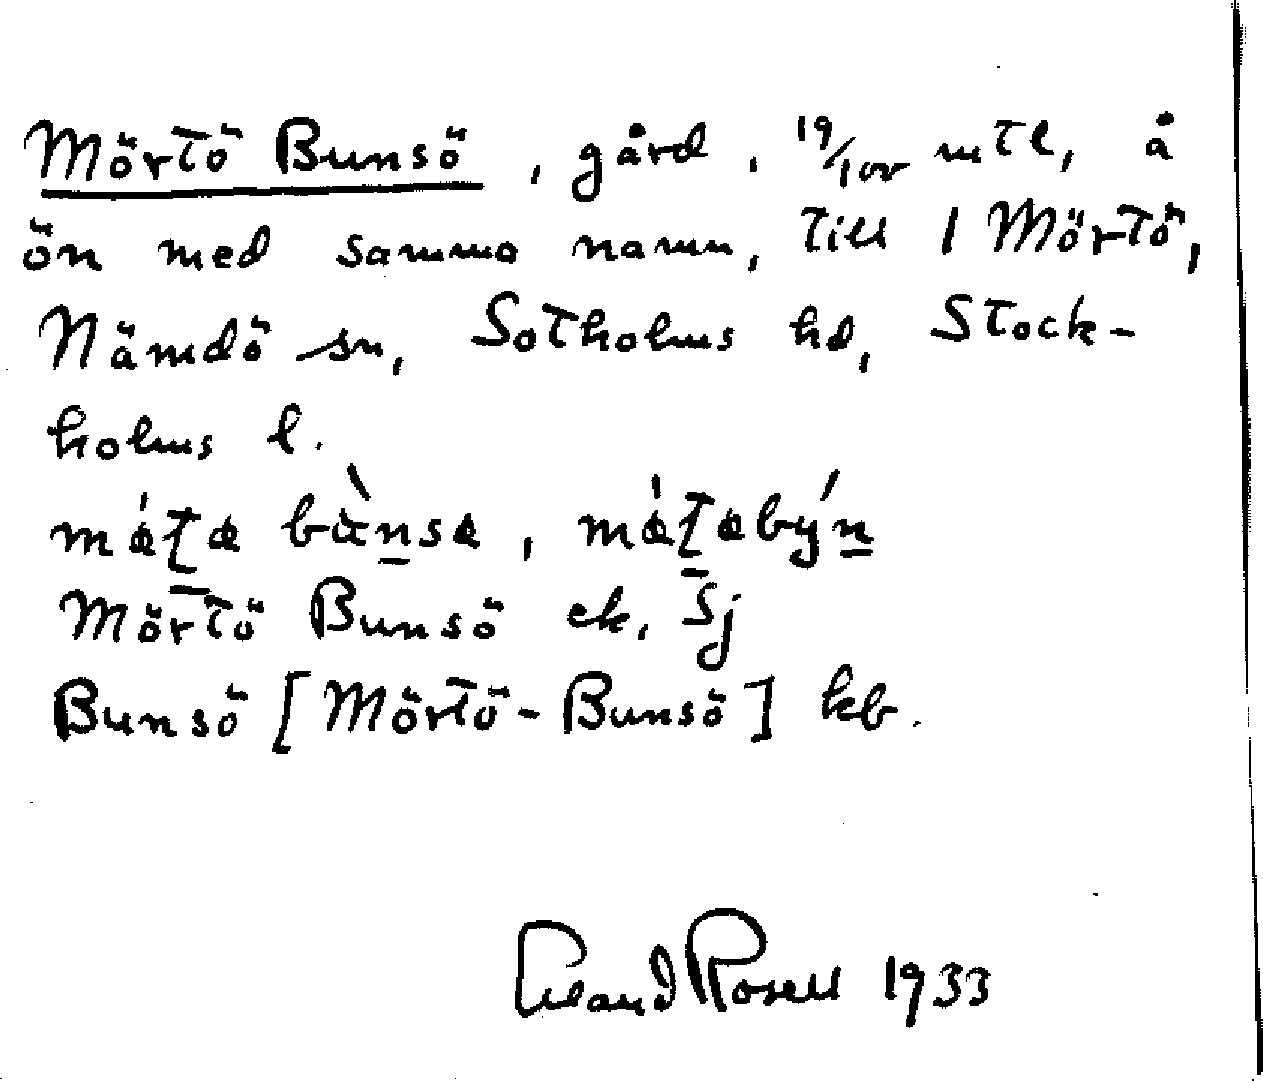 Mörtö Bunsö, gård, 19/100 mtl, å
ön med samma namn, till 1 Mörtö,
Nämdö sn, Sotholms hd, Stock-
holms l.
Mörtö Bunsö ek. Sj
Bunsö [Mörtö-Bunsö] kb.
Erland Rosell 1933